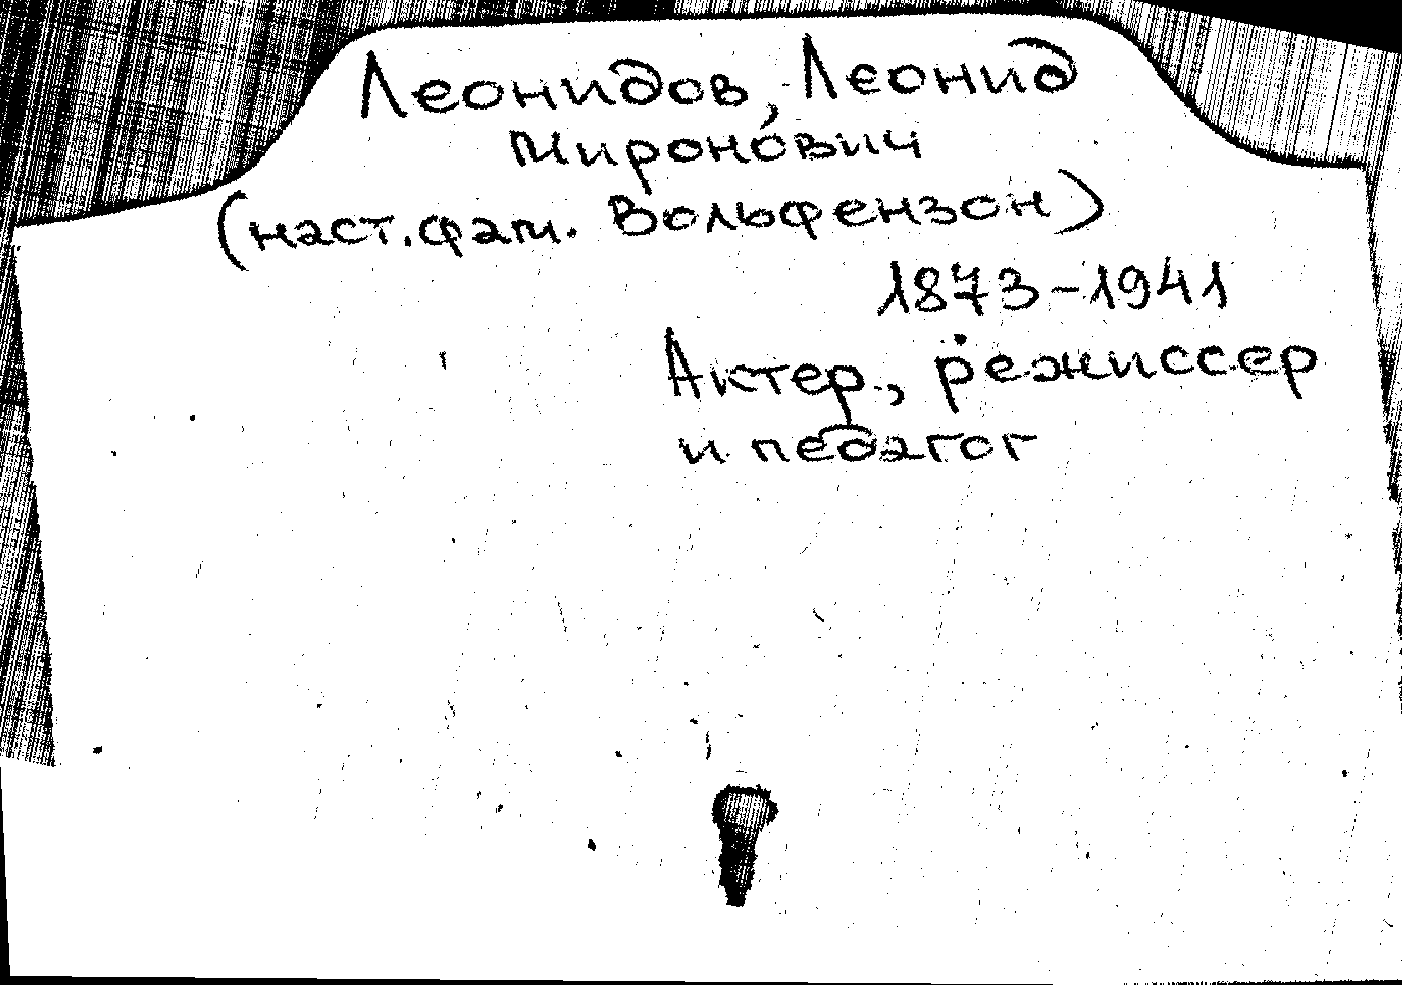 Леонидов, Леонид
Миронович
(наст. фам. Вольфензон)
1873-1941
Актер, режиссер
и педагог